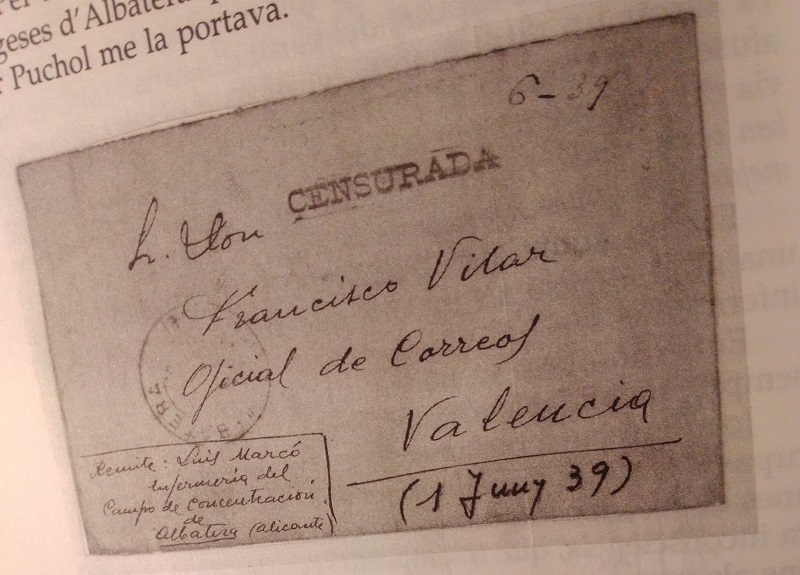 geses d'Albatera
Puchol me la portava.
6-39
CENSURADA
Sr. Don
Francisco Vilar
Oficial de Correos
Valencia
(1 Juny 39)
Remite: Luis Marcó
Enfermería del
Campo de Concentración
de
Albatera (Alicante)